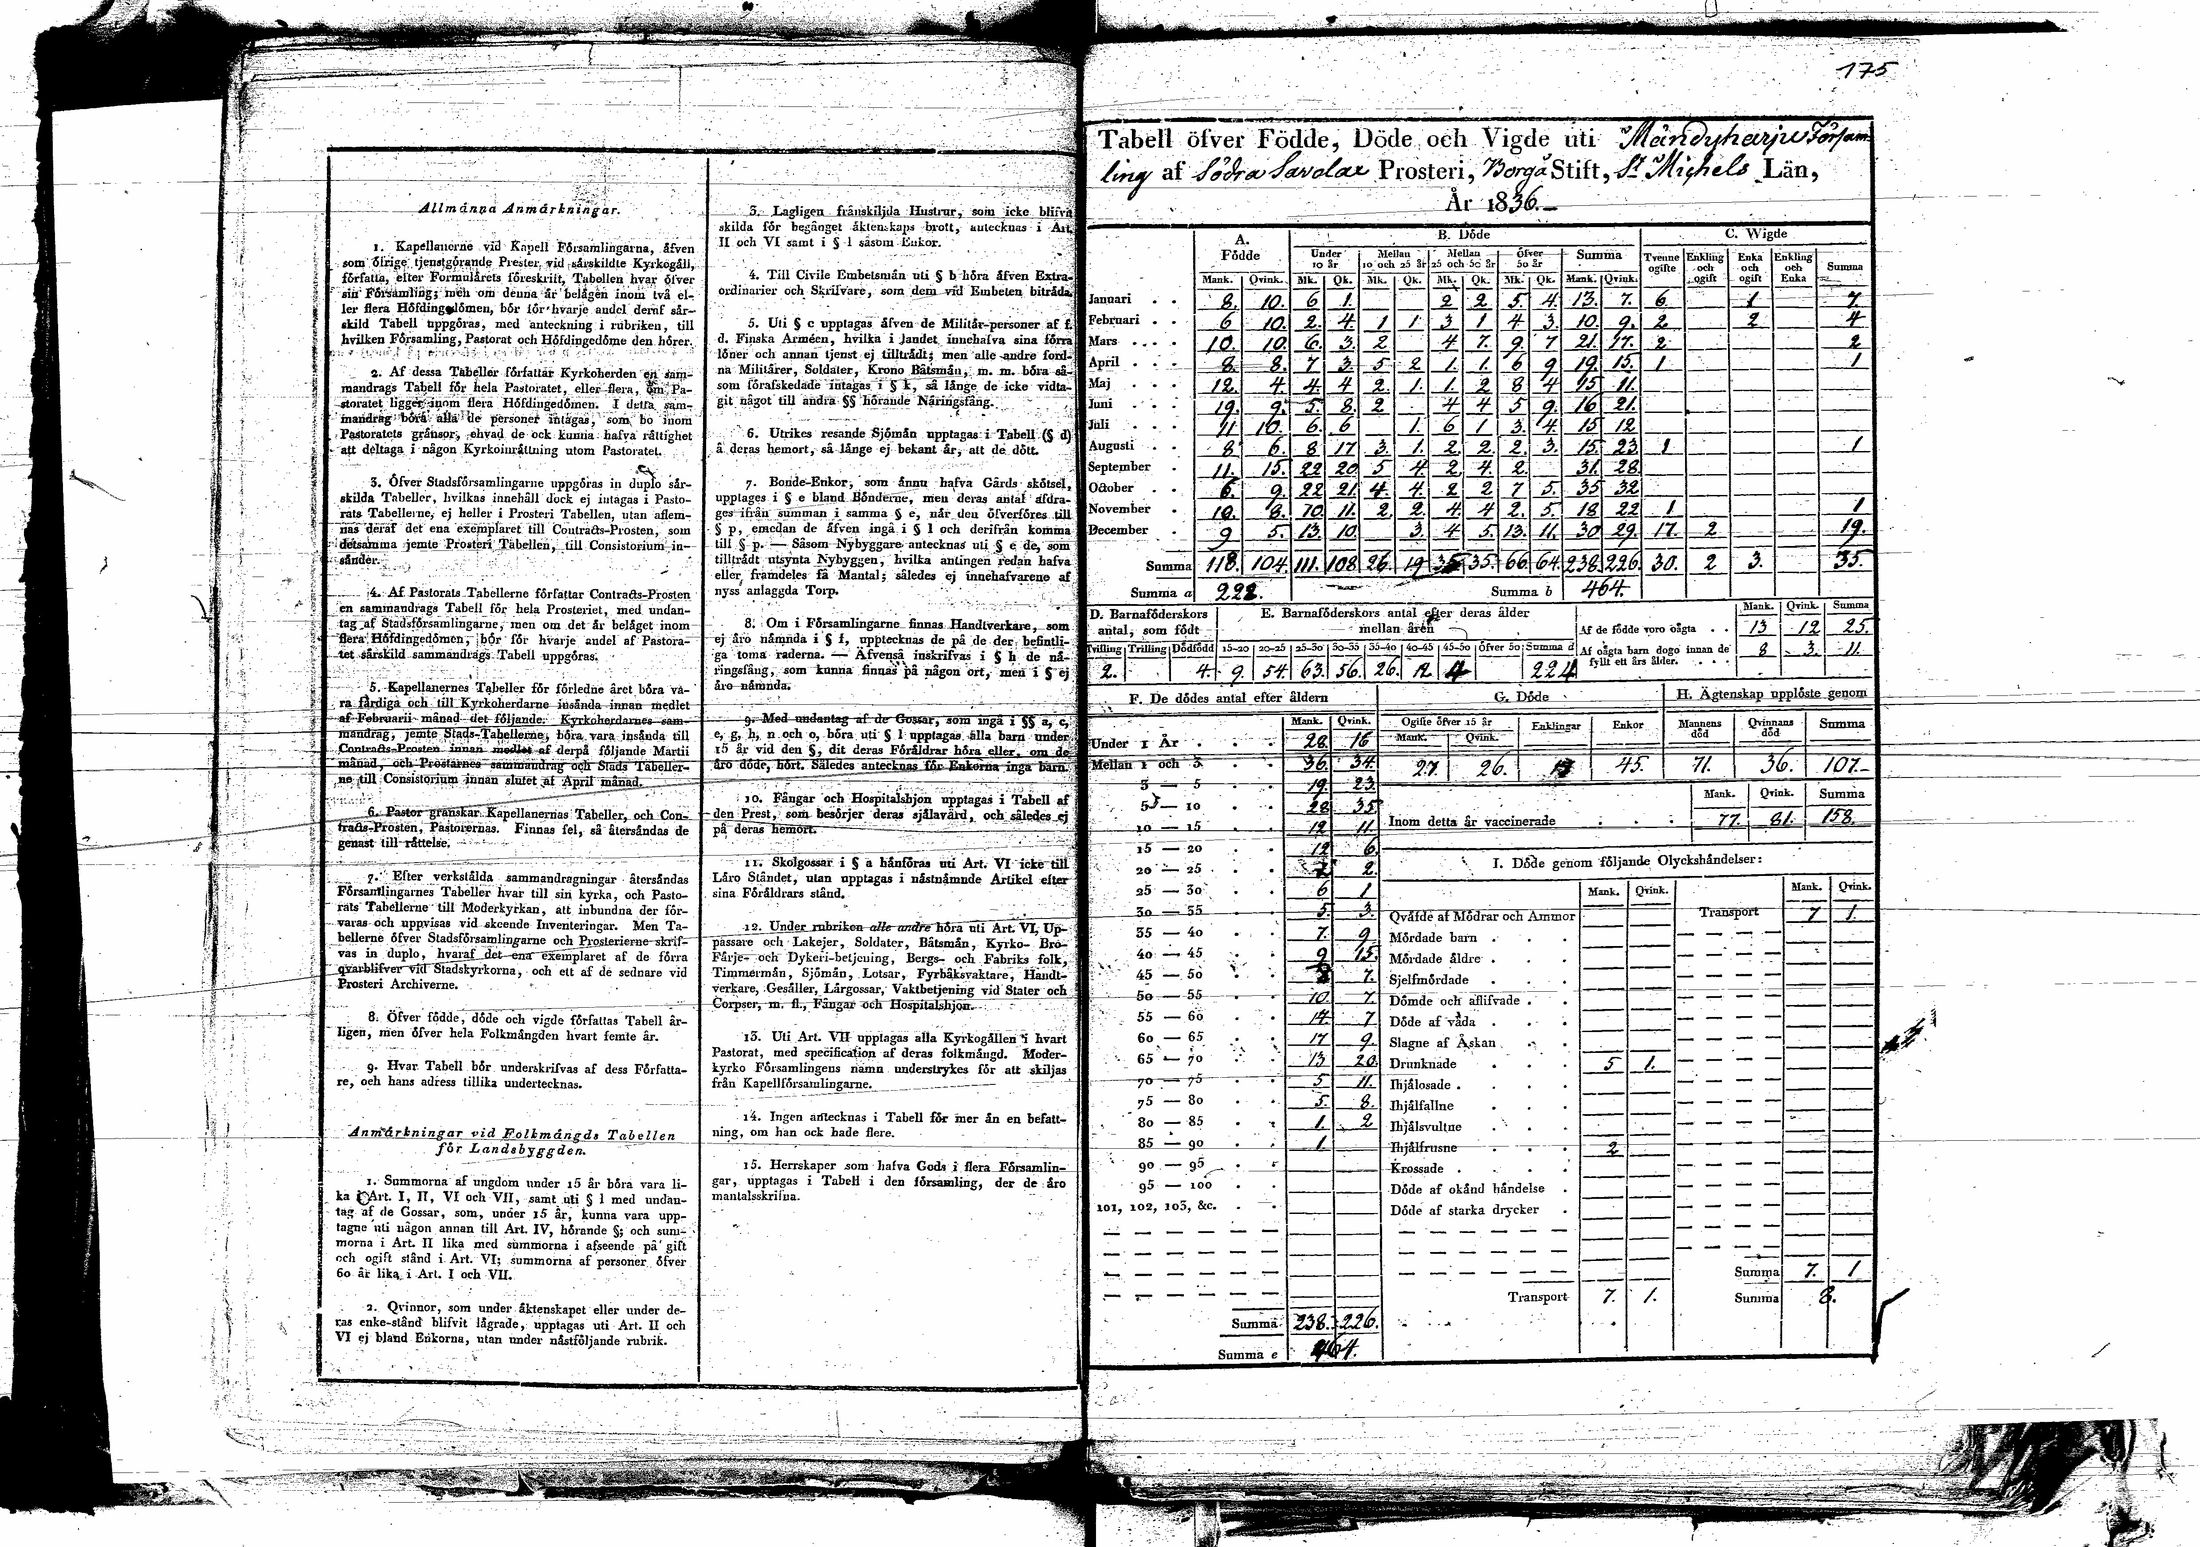 175
Allmänna Anmärkningar.
1. Kapellanerne vid Kapell Församlingarna, äfven
som öfrige tjenstgörande Prester vid särskildte Kyrkogäll,
författa, efter Formulärets föreskrift, Tabellen hvar öfver
sin Församling; men om denna är belägen inom två el-
ler flera Höfdingedömen, bör för hvarje andel deraf sär-
skild Tabell uppgöras, med anteckning i rubriken, till
hvilken Församling, Pastorat och Höfdingedöme den hörer.
2. Af dessa Tabeller författar Kyrkoherden en sam-
mandrags Tabell för hela Pastoratet, eller flera, om Pa-
storatet ligger inom flera Höfdingedömen. I detta sam-
mandrag böra alla de personer intagas, som bo inom
Pastoratets gränsor, ehvad de ock kunna hafva rättighet
att deltaga i någon Kyrkoinrättning utom Pastoratet.
3. Öfver Stadsförsamlingarne uppgöras in duplo sär-
skilda Tabeller, hvilkas innehåll dock ej intagas i Pasto-
rats Tabellerne, ej heller i Prosteri Tabellen, utan aflem-
nas deraf det ena exemplaret till Contracts-Prosten, som
detsamma jemte Prosteri Tabellen, till Consistorium in-
sänder.
4. Af Pastorats Tabellerne författar Contracts-Prosten
en sammandrags Tabell för hela Prosteriet, med undan-
tag af Stadsförsamlingarne, men om det är beläget inom
flera Höfdingedömen, bör för hvarje andel af Pastora-
tet särskild sammandrags Tabell uppgöras.
5. Kapellanernes Tabeller för förledne året böra va-
ra färdiga och till Kyrkoherdarne insända innan medlet
af Februarii månad det följande. Kyrkoherdarnes sam-
mandrag, jemte Stads-Tabellerne, böra vara insända till
Contracts-Prosten innan medlet af derpå följande Martii
månad, och Prostarnes sammandrag och Stads Tabeller-
ne till Consistorium innan slutet af April månad.
6. Pastor granskar Kapellanernas Tabeller, och Con-
tracts-Prosten, Pastorernas. Finnas fel, så återsändas de
genast till rättelse.
7. Efter verkställda sammandragningar återsändas
Församlingarnes Tabeller hvar till sin kyrka, och Pasto-
rats Tabellerne till Moderkyrkan, att inbundna der för-
varas och uppvisas vid skeende Inventeringar. Men Ta-
bellerne öfver Stadsförsamlingarne och Prosterierne skrif-
vas in duplo, hvaraf det ena exemplaret af de förra
qvarblifver vid Stadskyrkorna, och ett af de sednare vid
Prosteri Archiverne.
8. Öfver födde, döde och vigde författas Tabell år-
ligen, men öfver hela Folkmängden hvart femte år.
9. Hvar Tabell bör underskrifvas af dess Författa-
re, och hans adress tillika undertecknas.
Anmärkningar vid Folkmängds Tabellen
för Landsbyggden.
1. Summorna af ungdom under 15 år böra vara li-
ka i Art. I, II, VI och VII, samt uti § l med undan-
tag af de Gossar, som, under 15 år, kunna vara upp-
tagne uti någon annan till Art. IV, hörande §; och sum-
morna i Art. II lika med summorna i afseende på gift
och ogift stånd i Art. VI; summorna af personer öfver
60 år lika i Art. I och VII.
2. Qvinnor, som under äktenskapet eller under de-
ras enke-stånd blifvit lägrade, upptagas uti Art. II och
VI ej bland Enkorna, utan under nästföljande rubrik.
3. Lagligen frånskiljda Hustrur, som icke blifva
skilda för begånget äktenskaps brott, antecknas i Art.
II och VI samt i § l såsom Enkor.
4. Till Civile Embetsmän uti § b höra äfven Extra-
ordinarier och Skrifvare, som dem vid Embeten biträda.
5. Uti § c upptagas äfven de Militär-personer af f.
d. Finska Arméen, hvilka i landet innehafva sina förra
löner och annan tjenst ej tillträdt; men alle andre ford-
na Militärer, Soldater, Krono Båtsmän, m. m. böra så-
som förafskedade intagas i § k, så länge de icke vidta-
git något till andra §§ hörande Näringsfång.
6. Utrikes resande Sjömän upptagas i Tabell (§ d)
å deras hemort, så länge ej bekant är, att de dött.
7. Bonde-Enkor, som ännu hafva Gårds skötsel,
upptages i § e bland Bönderne, men deras antal afdra-
ges ifrån summan i samma § e, när den öfverföres till
§ p, emedan de äfven ingå i § l och derifrån komma
till § p. — Såsom Nybyggare antecknas uti § e de, som
tillträdt utsynta Nybyggen, hvilka antingen redan hafva
eller framdeles få Mantal; således ej innehafvarene af
nyss anlaggda Torp.
8. Om i Församlingarne finnas Handtverkare, som
ej äro nämnda i § f, upptecknas de på de der befintli-
ga toma raderna. — Äfvenså inskrifvas i § h de nä-
ringsfång, som kunna finnas på någon ort, men i § ej
äro nämnda.
9. Med undantag af de Gossar, som ingå i §§ a, c,
e, g, h, n och o, böra uti § l upptagas alla barn under
15 år vid den §, dit deras Föräldrar höra eller, om de
äro döde, hört. Således antecknas för Enkorna inga barn.
10. Fångar och Hospitalshjon upptagas i Tabell af
den Prest, som besörjer deras själavård, och således ej
på deras hemort.
11. Skolgossar i § a hänföras uti Art. VI icke till
Läro Ståndet, utan upptagas i nästnämnde Artikel efter
sina Föräldrars stånd.
12. Under rubriken alle andre höra uti Art. VI, Up-
passare och Lakejer, Soldater, Båtsmän, Kyrko- Bro-
Färje- och Dykeri-betjening, Bergs- och Fabriks folk,
Timmermän, Sjömän, Lotsar, Fyrbåksvaktare, Handt-
verkare, Gesäller, Lärgossar, Vaktbetjening vid Stater och
Corpser, m. fl., Fångar och Hospitalshjon.
13. Uti Art. VII upptagas alla Kyrkogällen i hvart
Pastorat, med specification af deras folkmängd. Moder-
kyrko Församlingens namn understrykes för att skiljas
från Kapellförsamlingarne.
14. Ingen antecknas i Tabell för mer än en befatt-
ning, om han ock hade flere.
15. Herrskaper som hafva Gods i flera Församlin-
gar, upptagas i Tabell i den församling, der de äro
mantalsskrifna.
Tabell öfver Födde, Döde och Vigde uti Mändyharju Försam-
ling af Södra Savolax Prosteri, Borgå Stift, St Michels Län,
År 1836.
A. Födde B. Döde C. Wigde
Under 10 år Mellan 10 och 25 år Mellan 25 och 50 år Öfver 50 år Summa Tvenne ogifte Enkling och ogift Enka och ogift Enkling och Enka Summa
Mank. Qvink. Mk. Qk. Mk. Qk. Mk. Qk. Mk. Qk. Mank. Qvink.
Januari 8. 10. 6 1. 2 2 5. 4. 13. 7. 6. 1 7.
Februari 6 10. 2. 4. 1 1 3 1 4 3. 10. 9. 2 2 4
Mars 10. 10. 6. 3. 2 4 7. 9. 7 21. 17. 2 2
April 8. 8. 7 3. 5 2 1. 1. 6 9 19. 15. 1 1
Maj 12. 4. 4. 4 2. 1. 1. 2 8 4 15 11.
Juni 19. 9. 5. 8. 2 4 4 5 9. 16 21.
Juli 11 10. 6. 6 1. 6 1 3. 4 15 12
Augusti 8 6. 8 17 3. 1. 2. 2. 2. 3. 15. 23 1 1
September 11. 15. 22 20 5 4. 2 4. 2. 31. 28
October 6. 9. 22 21. 4. 4. 2 2 7 5. 35 32
November 10. 8. 10. 11. 2 2. 4 4 2. 5. 18 22 1 1
December 9 5. 13. 10. 3. 4 5. 13. 11. 30 29. 17. 2 19.
Summa 118. 104. 111. 108 26. 19 35. 66. 64. 238. 226. 30. 2 3. 35.
Summa a 222. Summa b 464.
D. Barnaföderskors antal, som födt
E. Barnaföderskors antal efter deras ålder mellan åren
Mank. Qvink. Summa
Af de födde voro oägta 13 12 25.
Af oägta barn dogo innan de fyllt ett års ålder. 8 3. 11.
Tvilling Trilling Dödfödd 15-20 20-25 25-30 30-35 35-40 40-45 45-50 Öfver 50 Summa d
2. 4. 9. 54. 63. 56. 26. 12 4 224
F. De dödes antal efter åldern
Mank. Qvink.
Under 1 År 28. 16
Mellan 1 och 3 36. 34.
3 — 5 19. 23.
5 — 10 28 35.
10 — 15 12 11.
15 — 20 12 6.
20 — 25 2.
25 — 30 6 1
30 — 35 5. 3.
35 — 40 7. 9.
40 — 45 9 15.
45 — 50 7.
50 — 55 10 7.
55 — 60 14. 7
60 — 65 17 9.
65 — 70 13 20.
70 — 75 5 11.
75 — 80 5. 8.
80 — 85 1. 2
85 — 90 1.
90 — 95
95 — 100
101, 102, 103, &c.
Summa 238. 226.
Summa e 464.
G. Döde
Ogifte öfver 15 år Enklingar Enkor
Mank. Qvink.
27. 26. 45.
H. Ägtenskap upplöste genom
Mannens död Qvinnans död Summa
71. 36. 107.
Mank. Qvink. Summa
Inom detta år vaccinerade 77. 81. 158.
I. Döde genom följande Olyckshändelser:
Mank. Qvink. Mank. Qvink.
Qväfde af Mödrar och Ammor Transport 7 1.
Mördade barn
Mördade äldre
Sjelfmördade
Dömde och aflifvade
Döde af våda
Slagne af Åskan
Drunknade 5 1.
Ihjälosade
Ihjälfallne
Ihjälsvultne
Ihjälfrusne 2
Krossade
Döde af okänd händelse
Döde af starka drycker
Summa 7. 1
Transport 7. 1. Summa 8.